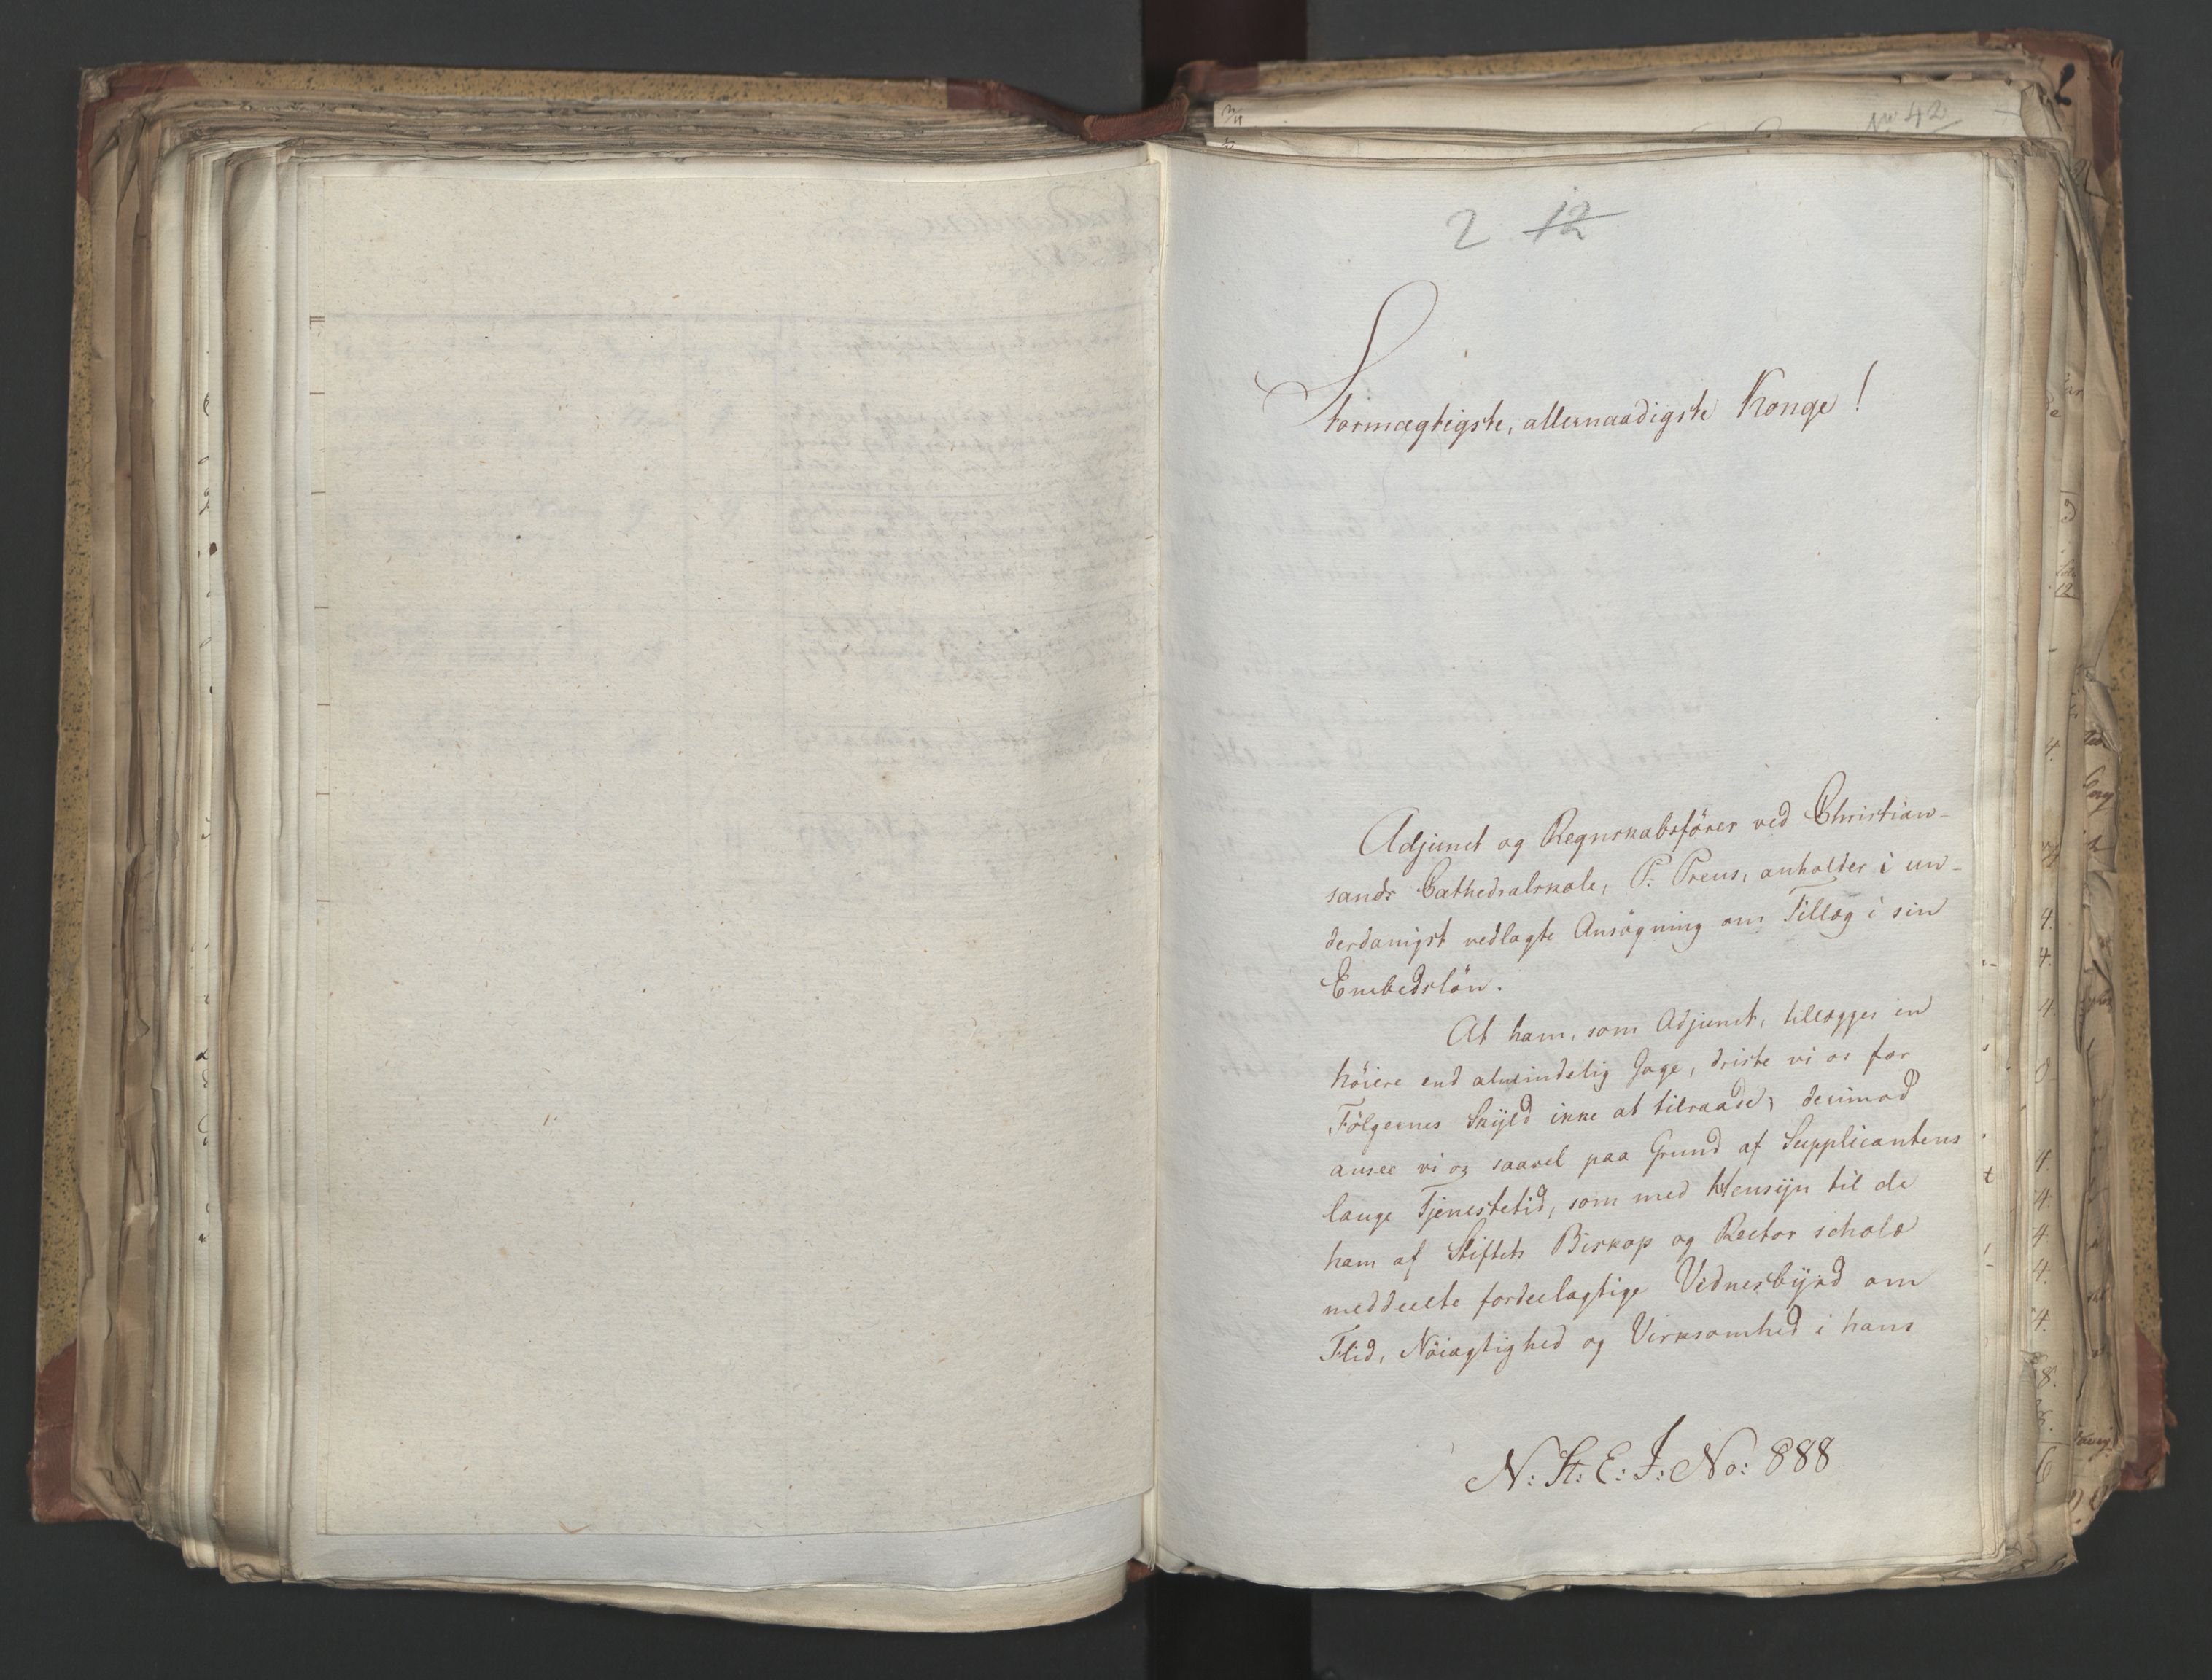 No 42
2 12
Stormægtigste, allernaadigste Konge!
Adjunct og Regnskabsfører ved Christian-
sands Cathedralskole, P. Preus, anholder i un-
derdanigst vedlagte Ansøgning om Tillæg i sin
Embedsløn.
At ham, som Adjunct, tillægges en
høiere end almindelig Gage, driste vi os for
Følgernes Skyld ikke at tilraade; derimod
ansee vi os saavel paa Grund af Supplicantens
lange Tjenestetid, som med Hensyn til de
ham af Stiftets Biskop og Rector scholæ
meddeelte fordeelagtige Vidnesbyrd om
Flid, Nøiagtighed og Virksomhed i hans
N: St: E: J: No: 888